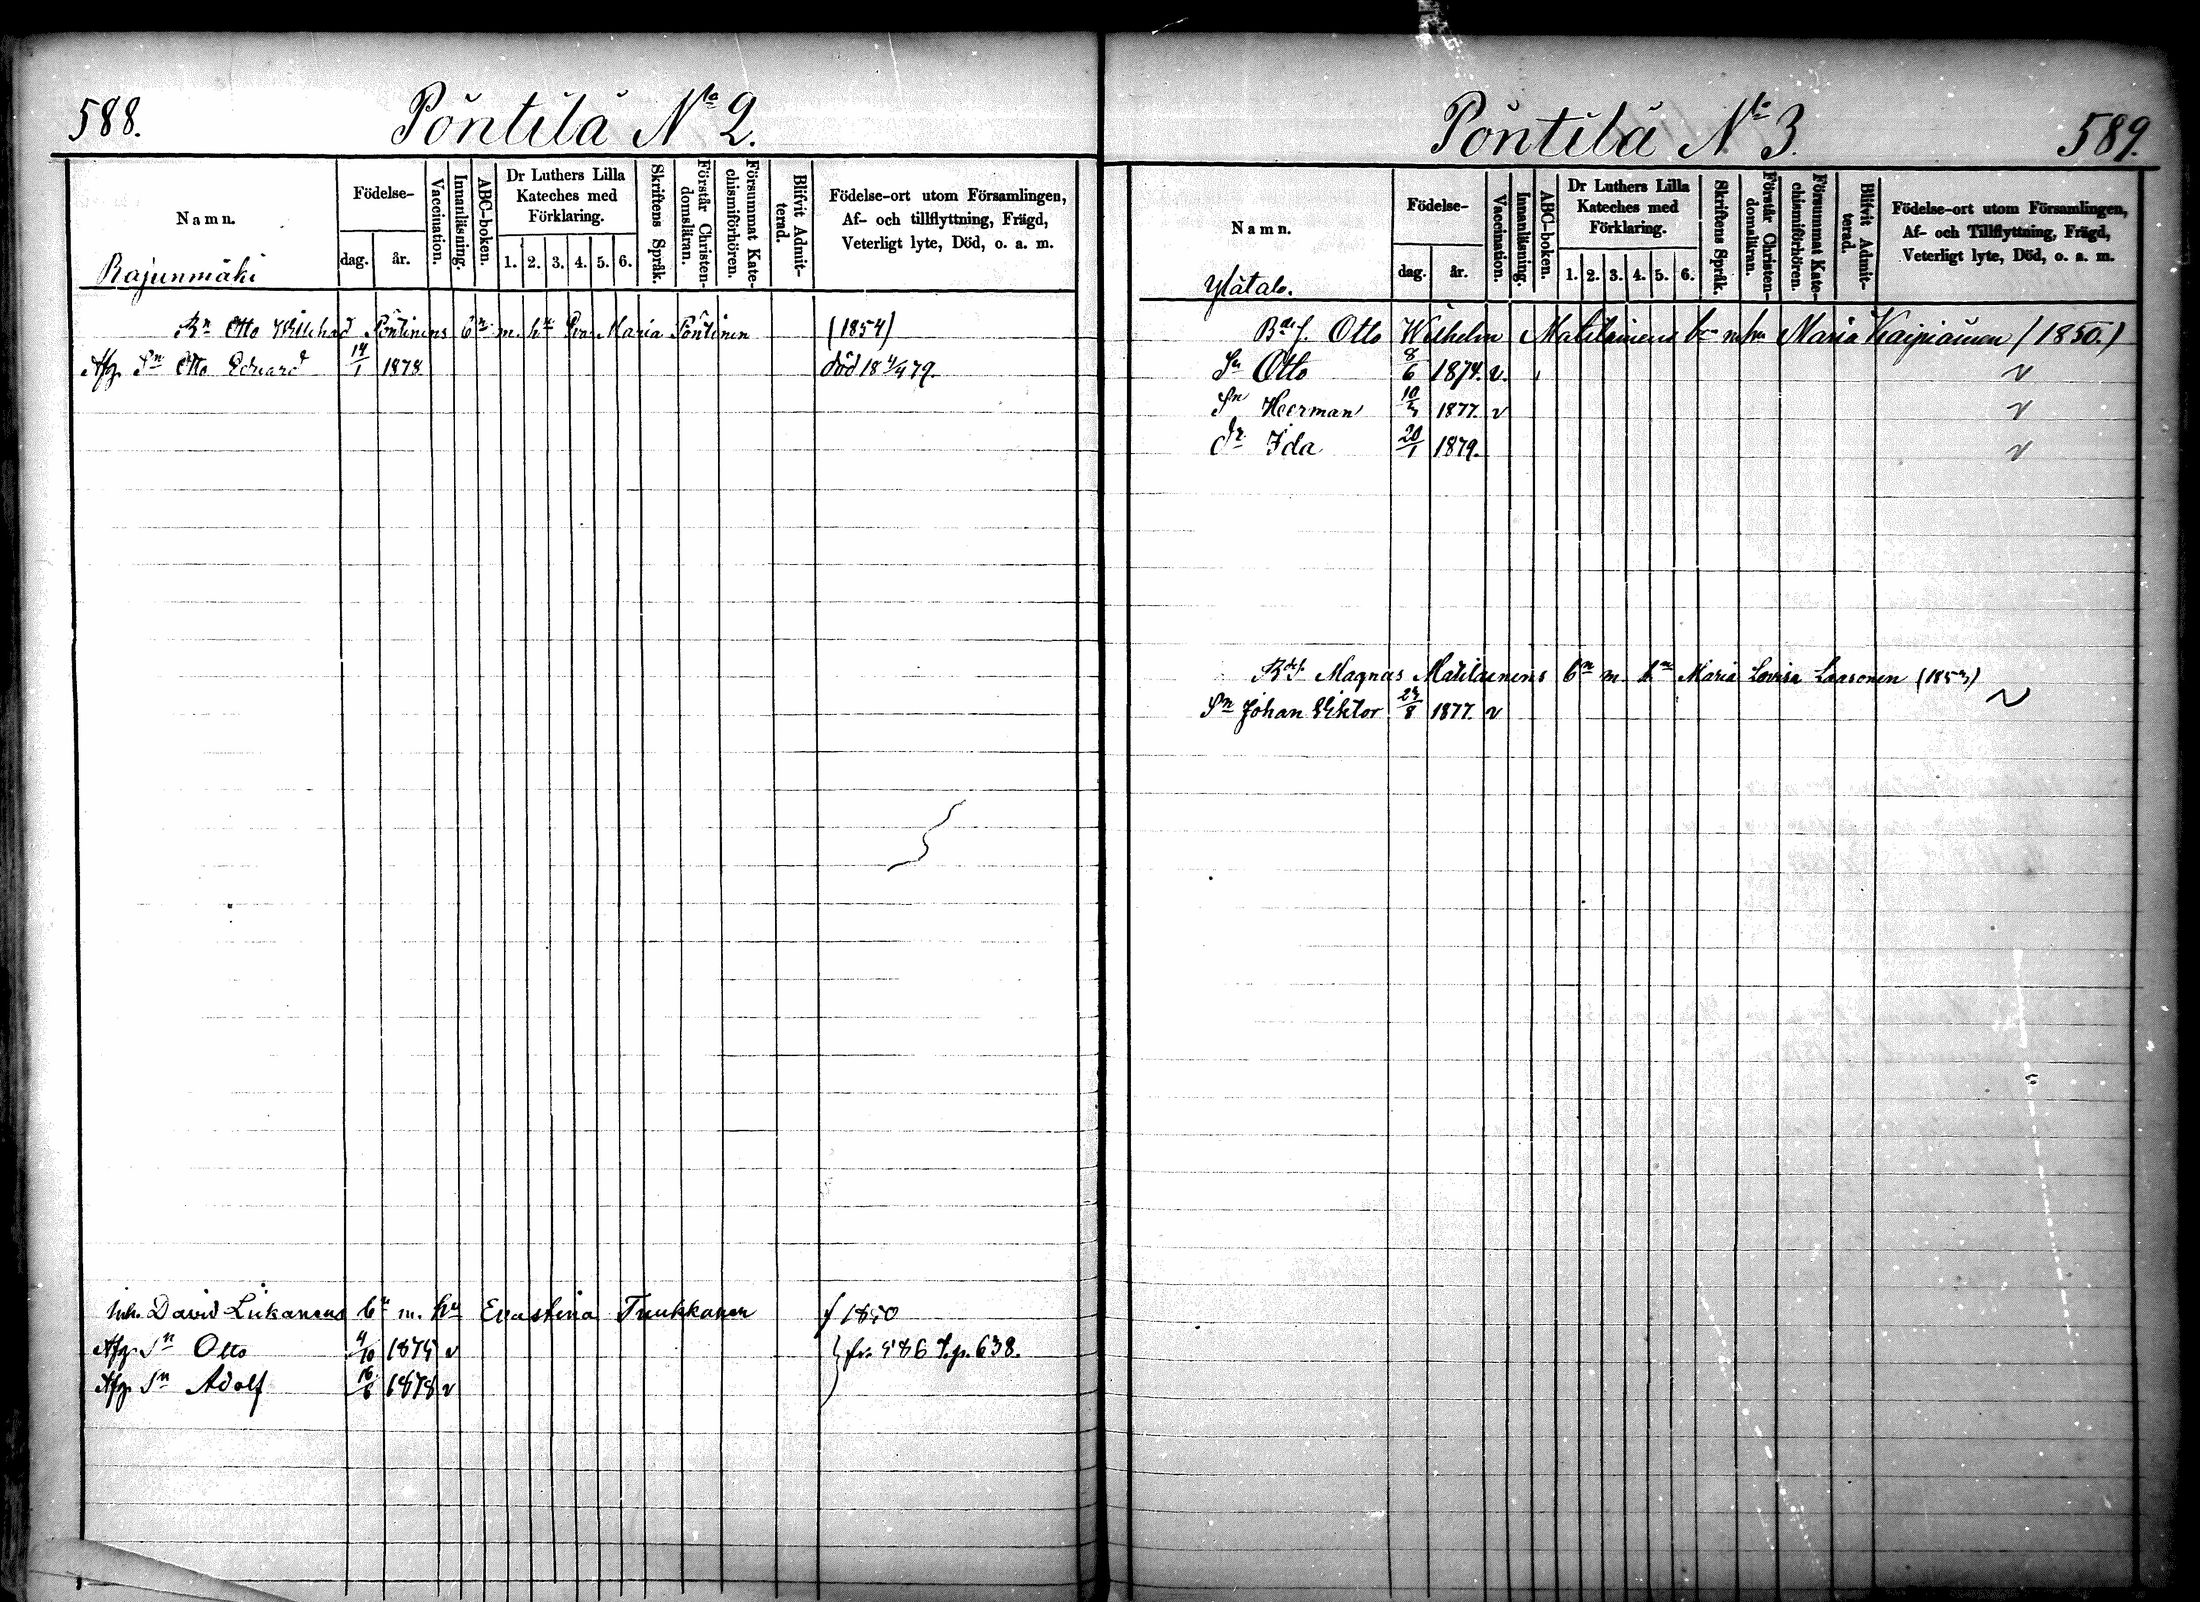 588.
Pöntilä No 2.
Namn.
Födelse-
dag.
år.
Vaccination.
Innanläsning.
ABC-boken.
Dr Luthers Lilla
Kateches med
Förklaring.
1. 2. 3. 4. 5. 6.
Skriftens Språk.
Förstår Christen-
domsläran.
Försummat Kate-
chismiförhören.
Blifvit Admit-
terad.
Födelse-ort utom Församlingen,
Af- och tillflyttning, Frägd,
Veterligt lyte, Död, o. a. m.
Rajunmäki
Otto Pöntinens bn m. hu Maria Pöntinen (1854)
Afg. Sn Otto Eduard 14/1 1878 död 18 4/4 79.
Inh. David Liikanens bn m. hu Evastina Tuukkanen f 1850
Afg. Sn Otto 4/10 1875 v } fr. 586 t.p. 638.
Afg. Sn Adolf 16/6 1878 v
Pöntilä No 3.
589.
Namn.
Födelse-
dag.
år.
Vaccination.
Innanläsning.
ABC-boken.
Dr Luthers Lilla
Kateches med
Förklaring.
1. 2. 3. 4. 5. 6.
Skriftens Språk.
Förstår Christen-
domsläran.
Försummat Kate-
chismiförhören.
Blifvit Admit-
terad.
Födelse-ort utom Församlingen,
Af- och Tillflyttning, Frägd,
Veterligt lyte, Död, o. a. m.
Ylätalo.
Otto Wilhelm Matilainens bn m hu Maria Kaipiainen (1850.)
Sn Otto 8/6 1874. v. v
Sn Herman 10/3 1877. v v
Dr Ida 20/1 1879. v
Magnus Matilainens bn m. hu Maria Lovisa Laasonen (1853)
Sn Johan Viktor 23/8 1877. v